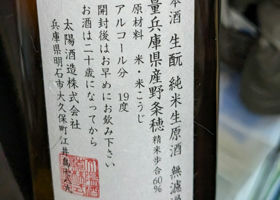 本酒 生酛 純米生原酒 無濾過
量兵庫県産野条穂 精米歩合60%
原材料 米・米こうじ
アルコール分 19度
開封後はお早めにお飲み下さい
お酒は二十歳になってから
太陽酒造株式会社
兵庫県明石市大久保町江井島